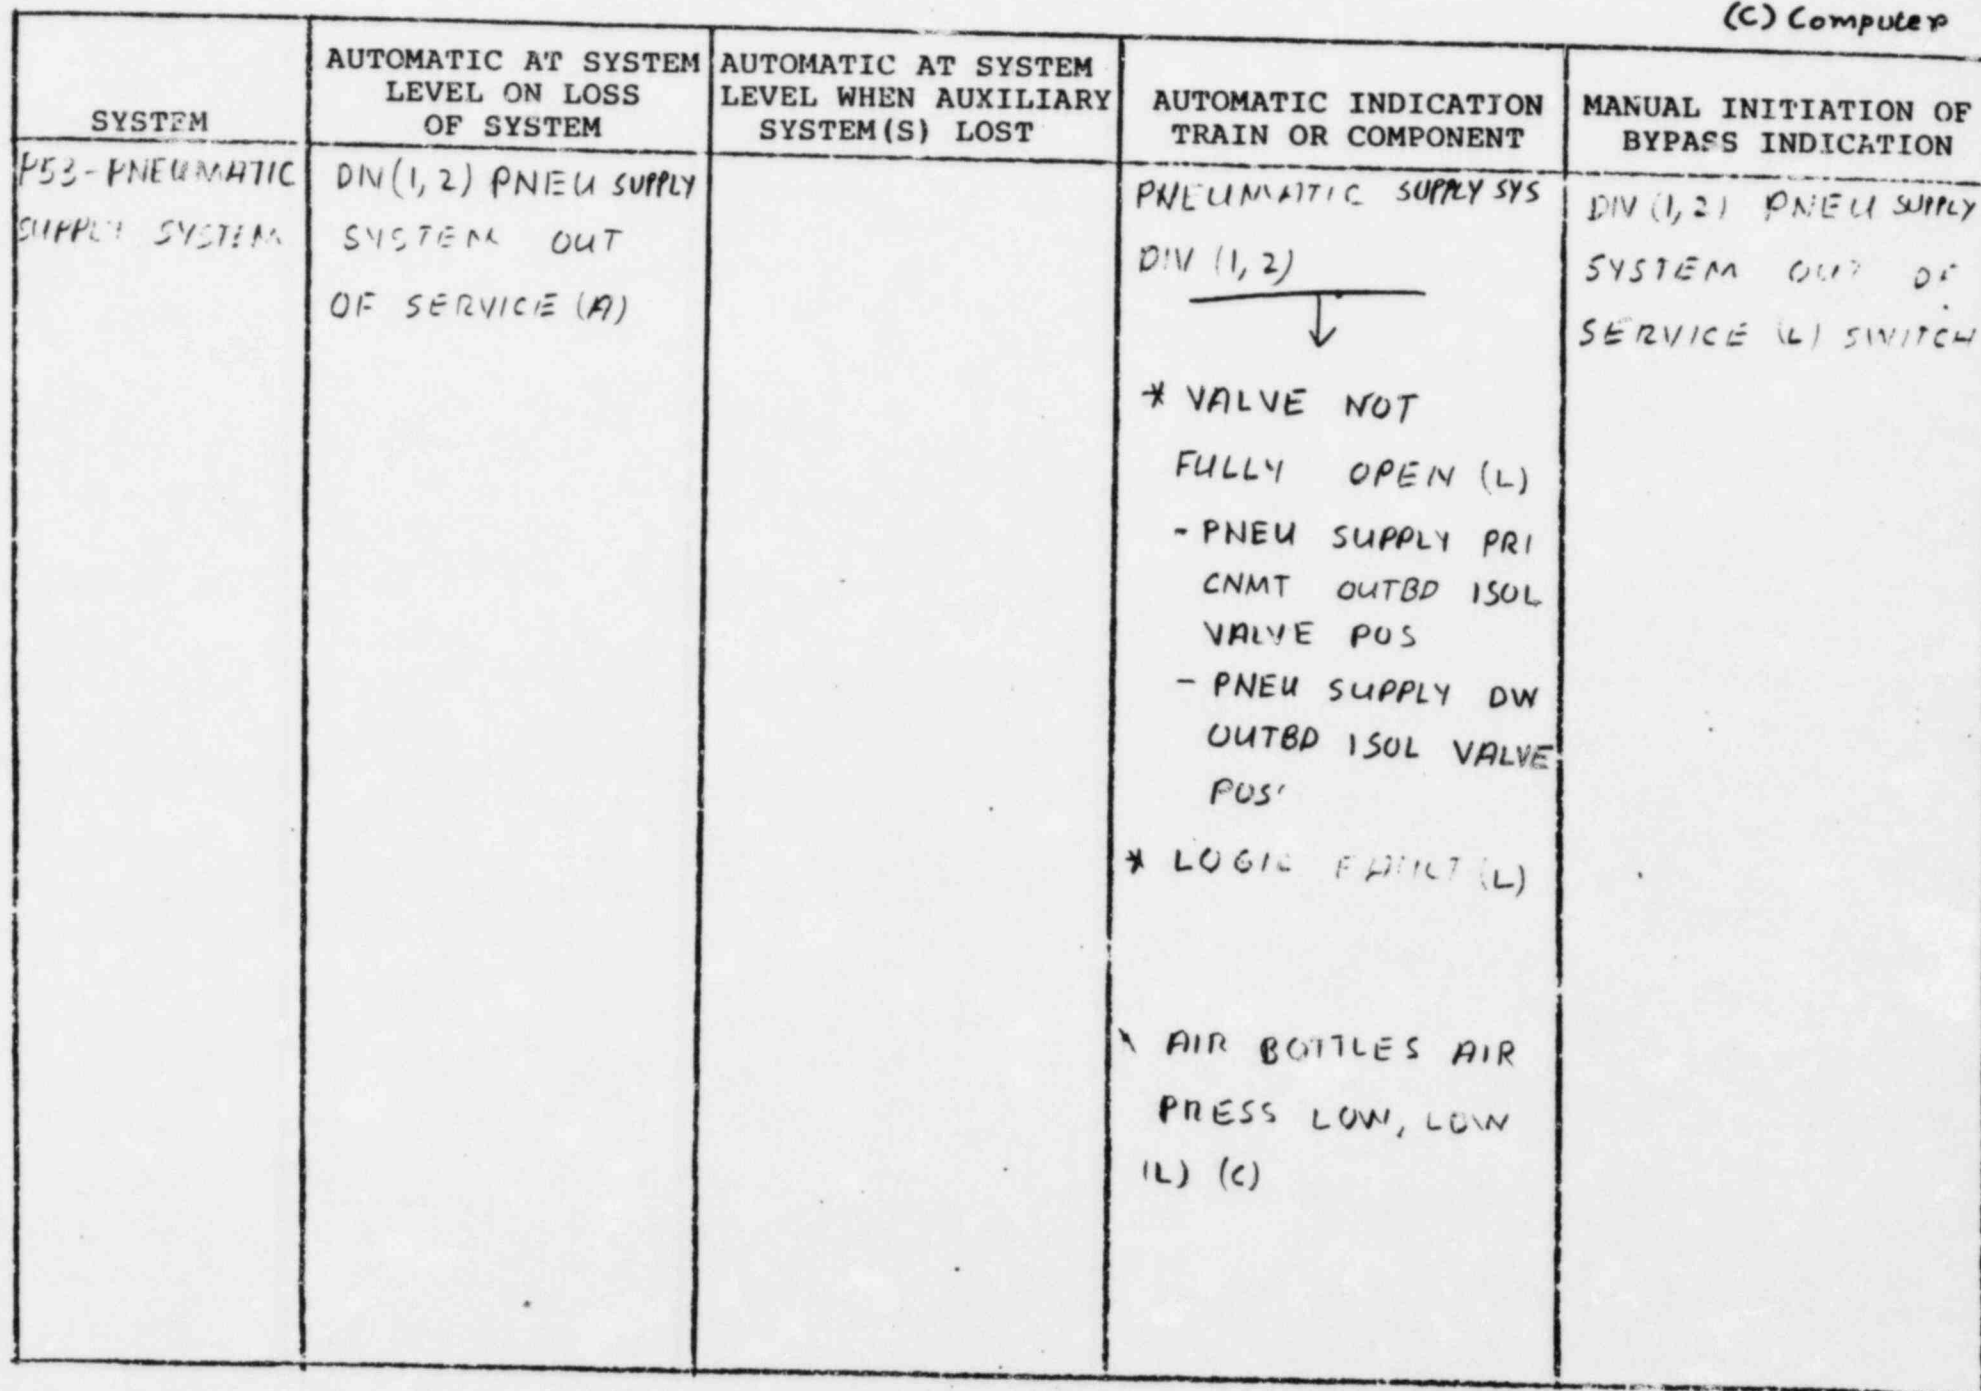 (C) Computer
SYSTEM
AUTOMATIC AT SYSTEM
LEVEL ON LOSS
OF SYSTEM
AUTOMATIC AT SYSTEM
LEVEL WHEN AUXILIARY
SYSTEM(S) LOST
AUTOMATIC INDICATION
TRAIN OR COMPONENT
MANUAL INITIATION OF
BYPASS INDICATION
P53-PNEUMATIC
SUPPLY SYSTEM
DIV(1,2) PNEU SUPPLY
SYSTEM OUT
OF SERVICE (A)
PNEUMATIC SUPPLY SYS
DIV (1,2)
* VALVE NOT
FULLY OPEN (L)
- PNEU SUPPLY PRI
CNMT OUTBD ISOL
VALVE POS
- PNEU SUPPLY DW
OUTBD ISOL VALVE
POS
* LOGIC FAULT (L)
AIR BOTTLES AIR
PRESS LOW, LOW
(L) (C)
DIV (1,2) PNEU SUPPLY
SYSTEM OUT OF
SERVICE (L) SWITCH